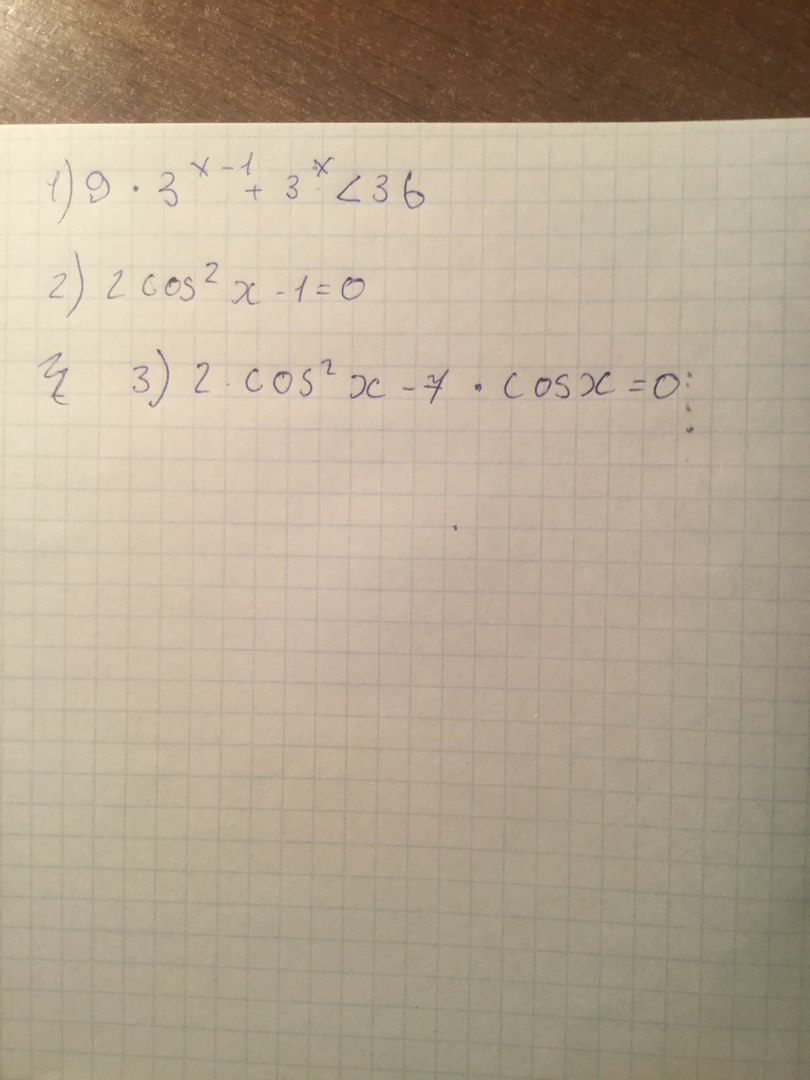 1) 9 · 3^(x-1) + 3^x < 36
2) 2 cos² x - 1 = 0
3) 2 · cos² x - 7 · cos x = 0